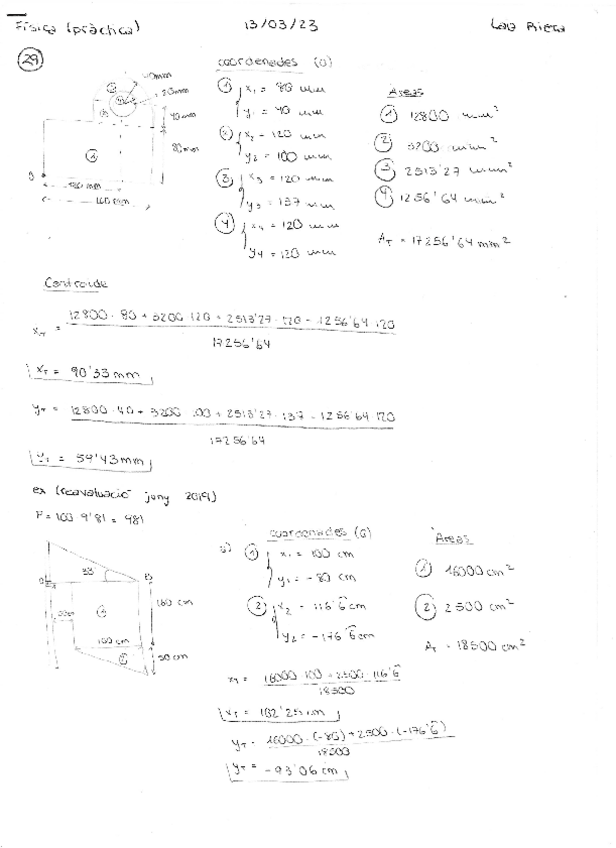 Física (pràctica) 13/03/23
29
coordenades (O)
Àrees
40mm
20mm
40mm
80mm
160 mm
① x₁ = 80 mm
y₁ = 40 mm
② x₂ = 120 mm
y₂ = 100 mm
③ x₃ = 120 mm
y₃ = 137 mm
④ x₄ = 120 mm
y₄ = 120 mm
① 12800 mm²
② 3200 mm²
③ 2513'27 mm²
④ 1256'64 mm²
A_T = 17256'64 mm²
Centroide
x_T = 12800 · 80 + 3200 · 120 + 2513'27 · 120 - 1256'64 · 120
17256'64
x_T = 90'33 mm
y_T = 12800 · 40 + 3200 · 100 + 2513'27 · 137 - 1256'64 · 120
17256'64
y_T = 59'43 mm
ex (reavaluació juny 2019)
P = 100 · 9'81 = 981
coordenades (O)
Àrees
a) ① x₁ = 100 cm
y₁ = -80 cm
② x₂ = 116'6 cm
y₂ = -176'6 cm
① 16000 cm²
② 2500 cm²
A_T = 18500 cm²
160 cm
100 cm
50 cm
x_T = 16000 · 100 + 2500 · 116'6
18500
x_T = 102'25 cm
y_T = 16000 · (-80) + 2500 · (-176'6)
18500
y_T = -93'06 cm